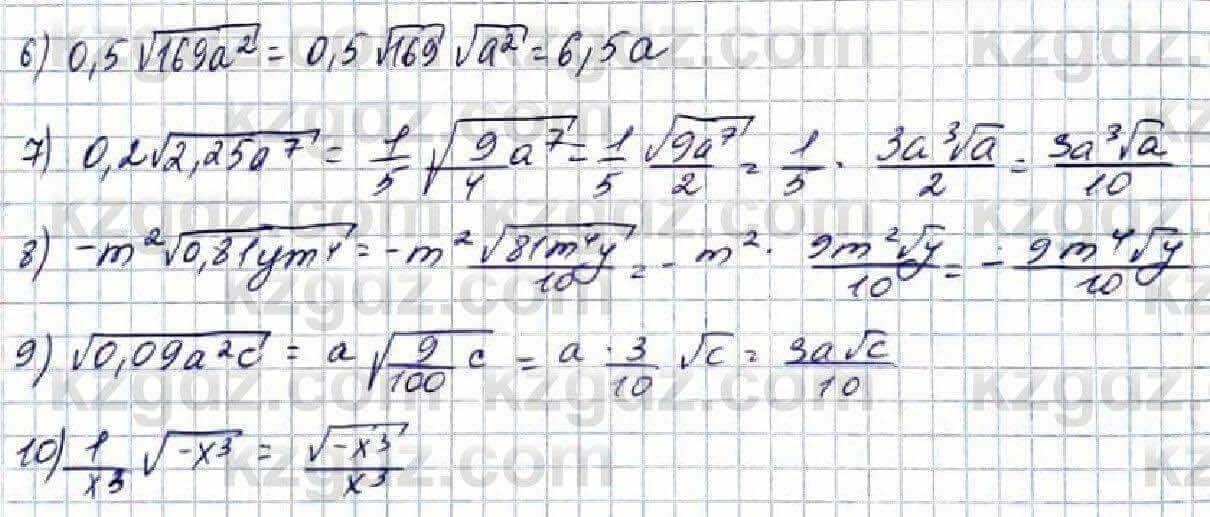 6) 0,5√169a² = 0,5 √169 √a² = 6,5a
7) 0,2√2,25a⁷ = 1/5 √9/4 a⁷ = 1/5 √9a⁷/2 = 1/5 · 3a³√a/2 = 3a³√a/10
8) -m²√0,81ym⁴ = -m² √81m⁴y/10 = -m² · 9m²√y/10 = - 9m⁴√y/10
9) √0,09a²c = a √9/100 c = a · 3/10 √c = 3a√c/10
10) 1/x³ √-x³ = √-x³/x³
kzgdz.com